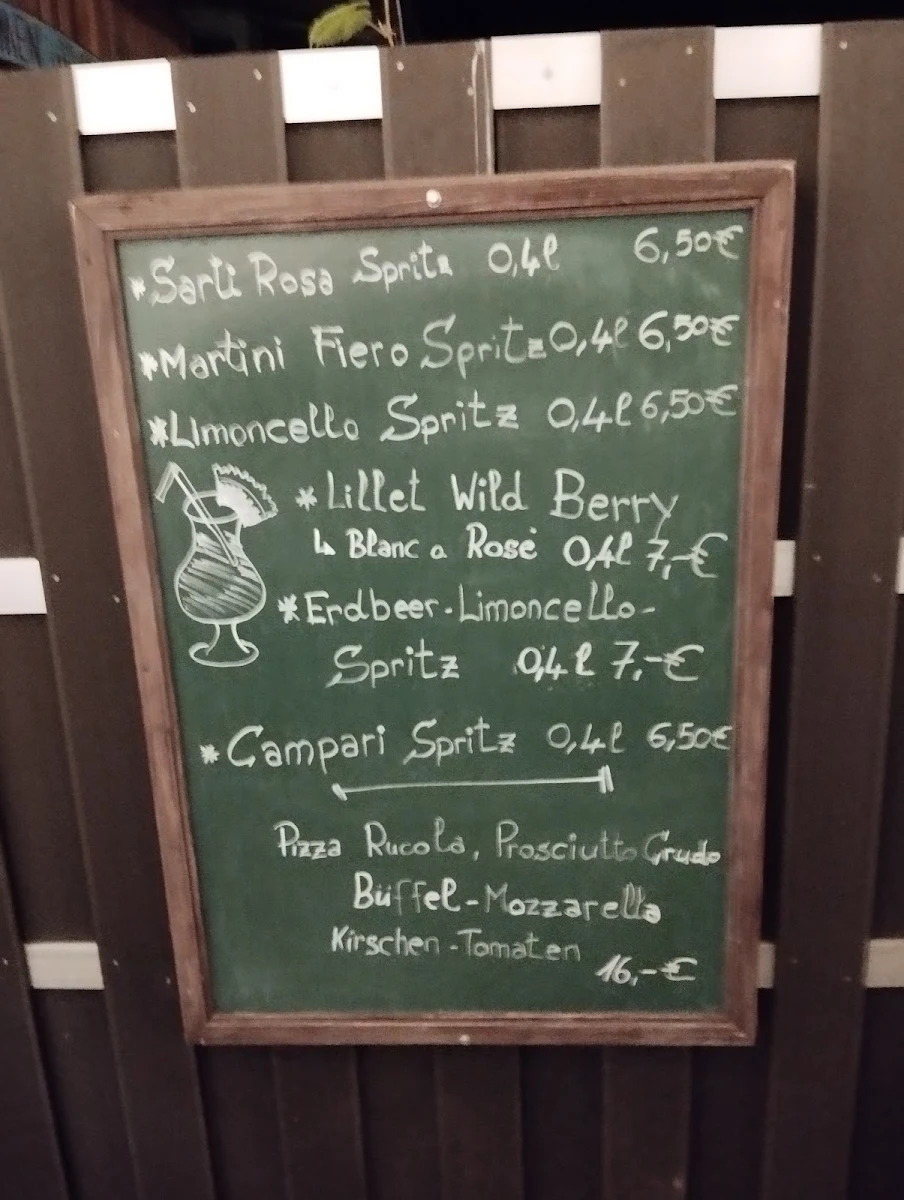 *Sarti Rosa Spritz 0,4l 6,50€
*Martini Fiero Spritz 0,4l 6,50€
*Limoncello Spritz 0,4l 6,50€
*Lillet Wild Berry
↳ Blanc o Rosé 0,4l 7,-€
*Erdbeer-Limoncello-
Spritz 0,4l 7,-€
*Campari Spritz 0,4l 6,50€
Pizza Rucola, Prosciutto Crudo
Büffel-Mozzarella
Kirschen-Tomaten
16,-€